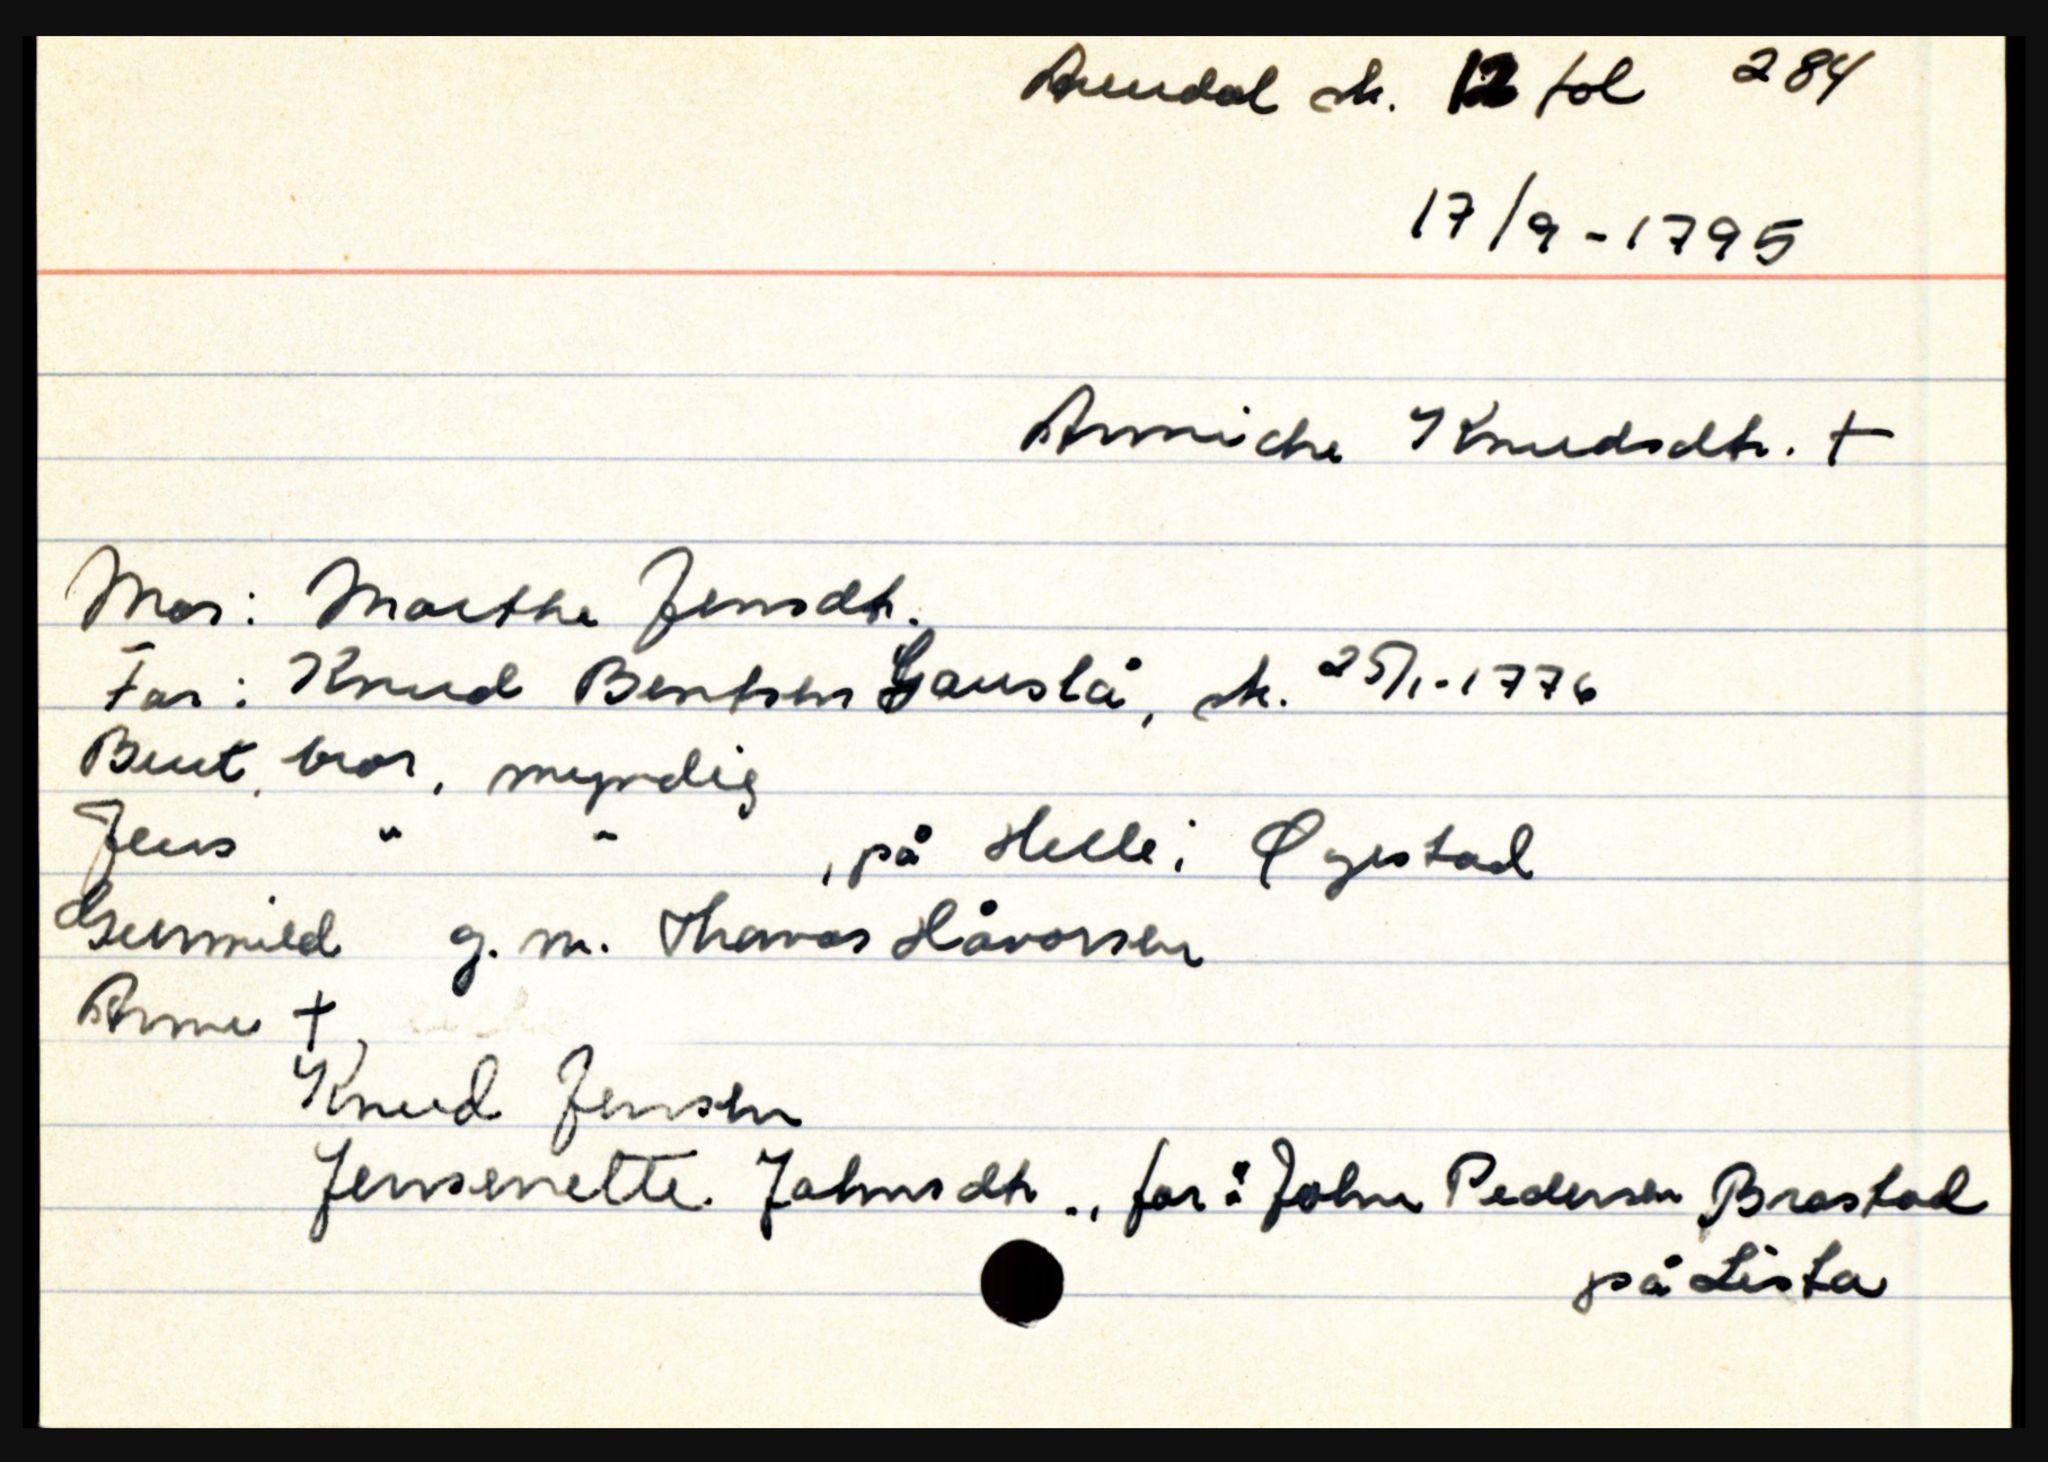 Arendal sk. 12 fol 284
17/9-1795
Anniche Knudsdtr. †
Mor: Marthe Jensdtr.
Far: Knud Bentsen Gauslå, sk. 25/1-1776
Bent, bror, myndig
Jens " " , på Helle i Øyestad
Gunnild g. m. Thomas Håvorsen
Anne †
Knud Jensen
Jensenette Johnsdtr., far: John Pedersen Brastad
på Lista